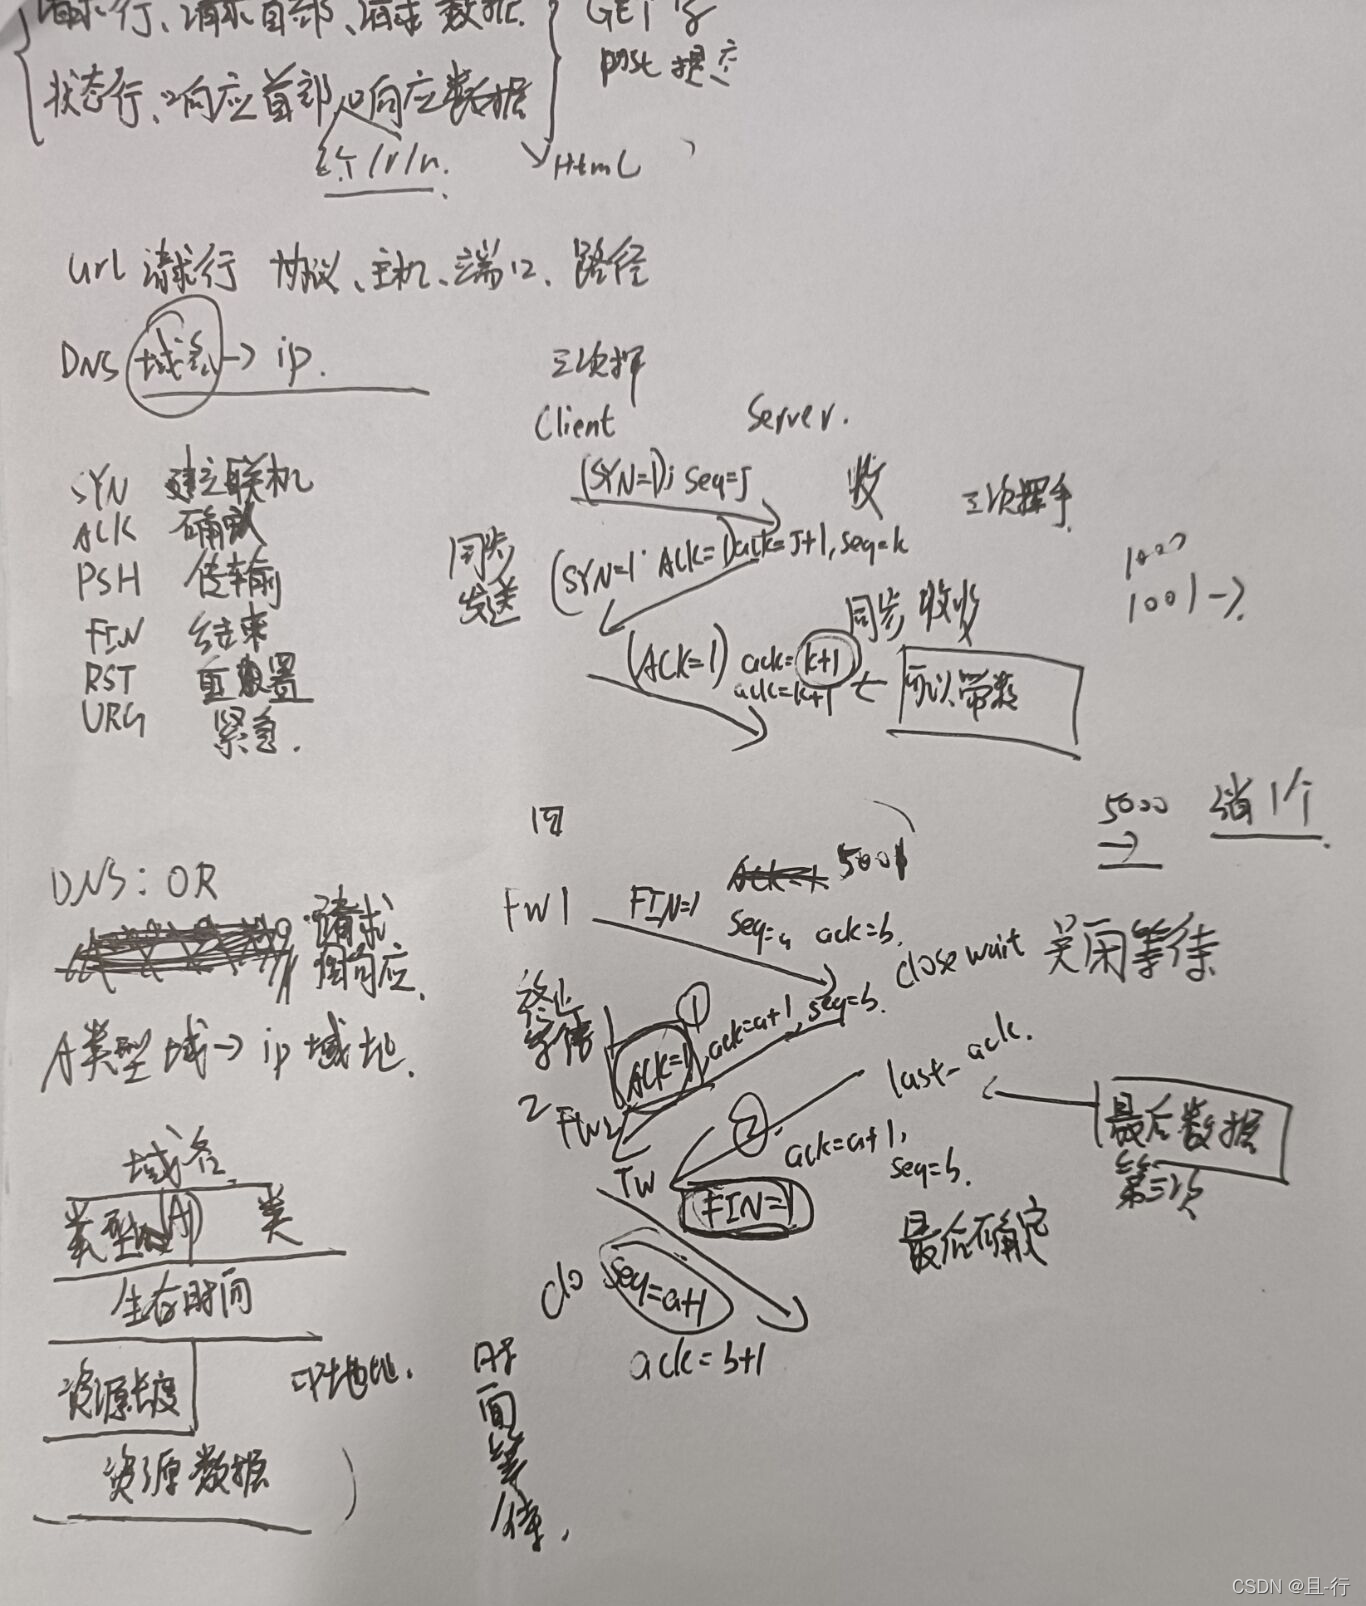 请求行、请求首部、请求数据.
GET 了
post 提交
状态行、响应首部、响应数据
/r/n.
HtmL
url 请求行 协议、主机、端口、路径
DNS 域名 -> ip.
三次挥
Client
Server.
(SYN=1)j seq=J
收
三次挥手
SYN 建立联机
ACK 确认
PSH 传输
FIN 结束
RST 重置
URG 紧急.
同步
发送
(SYN=1 ACK=1)ack=J+1, seq=k
同步 收
(ACK=1) ack=k+1
ack=k+1
可以带数
1000
1001 ->
5000
消1个
DNS: OR
请求
响应.
A类型 域-> ip 域地.
四
FW1
FIN=1
5001
seq=a ack=b.
close wait 关闭等待
ACK=1, ack=a+1, seq=b.
①
2 FW2
last-ack.
最后数据
第三次
②
ack=a+1,
seq=b.
TW
FIN=1
最后确定
clo
seq=a+1
ack=b+1
时
间
等
待.
域名
类型 (A) 类
生存时间
资源长度
IP地址.
资源数据
CSDN @且-行